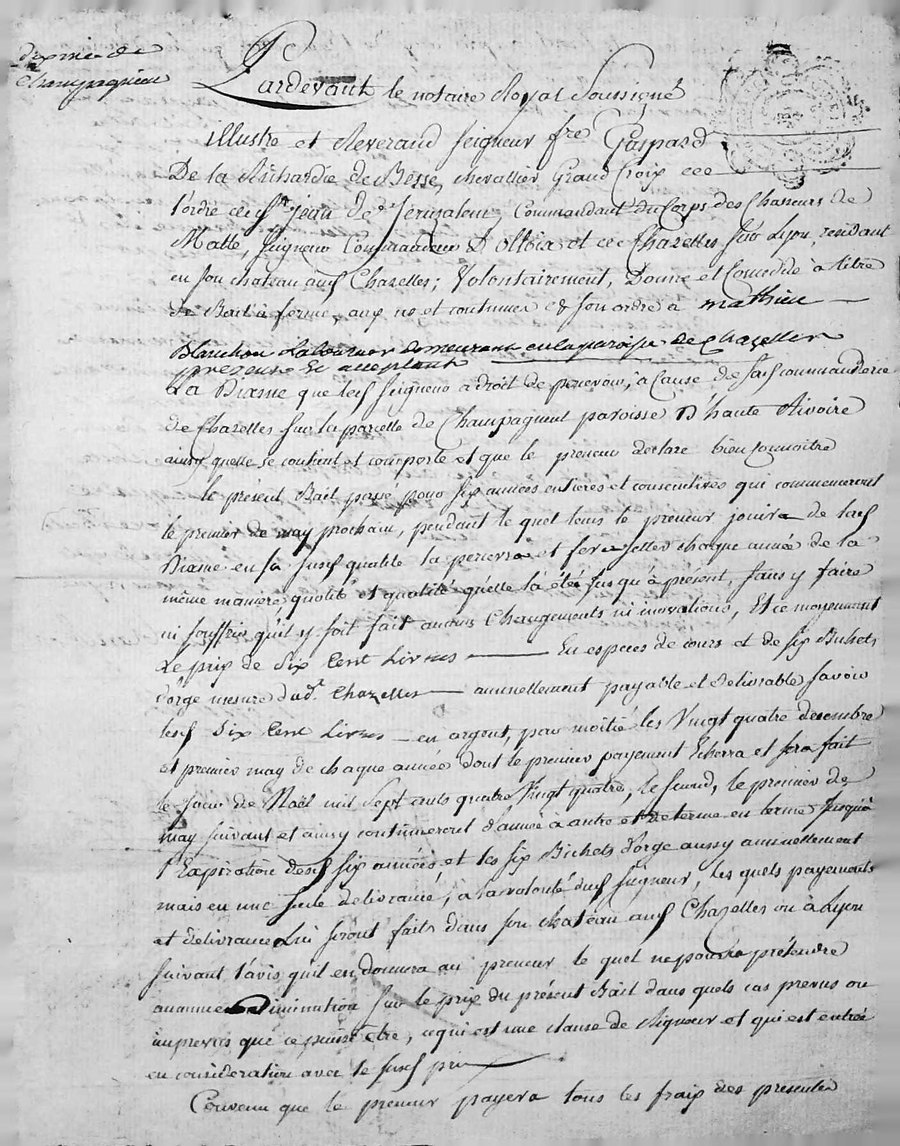 dixme de
Champagnieu
Pardevant le notaire Royal Soussigné
illustre et Reverand Seigneur fre Gaspard
De la Richardie de Besse, chevallier Grand Croix de
l'ordre de St jean de Jerusalem, Commandant du Corps des Chasseurs de
Malte, Seigneur Commandeur D'ollois et de Chazelles sur Lyon, resident
en son chateau aud Chazelles; Volontairement, Donne et Concede à titre
de Bail à ferme, aux no et coutumes de son ordre à mathieu
Blanchon Laboureur demeurant en la paroisse de Chazelles
present et acceptant
La Dixme que led Seigneur a droit de percevoir, à Cause de sad commanderie
de Chazelles sur la parcelle de Champagneut paroisse D'haute Rivoire
ainsy quelle se contient et comporte et que le preneur declare bien Connoitre
le présent Bail passé pour six années entieres et consecutives qui commenceront
le premier de may prochain, pendant le quel tems le preneur jouira de lad
Dixme en sa susd qualité la percevra et fera chaque année de la
même maniere quotité et qualité qu'elle l'a été jusqu'à présent, sans y faire
ni souffrir qu'il y soit fait aucuns Changements ni inovations, Et ce moyennant
Le prix de Six Cent Livres en especes de cours et de six Bichets
d'orge mesure dud. Chazelles annuellement payable et delivrable savoir
lesd Six Cent Livres en argent, par moitié les Vingt quatre decembre
et premier may de chaque année dont le premier payement Echerra et sera fait
le jour de Noël mil Sept cents quatre Vingt quatre, le second, le premier de
may suivant et ainsy continueront d'année à autre et de terme en terme jusqu'à
l'Expiration desd six années, et les six Bichets d'orge aussy annuellement
mais en une seule delivrance, à la volonté dud Seigneur, les quels payements
et delivrance Lui seront faits dans son chateau aud Chazelles ou à Lyon
suivant l'avis qu'il en donnera au preneur le quel ne pourra prétendre
aucune Diminution sur le prix du présent Bail dans quels cas prevus ou
imprevus que ce puisse être, ce qui est une clause de Rigueur et qui est entrée
en consideration avec le susd prix
Convenu que le preneur payera tous les fraix des presentes